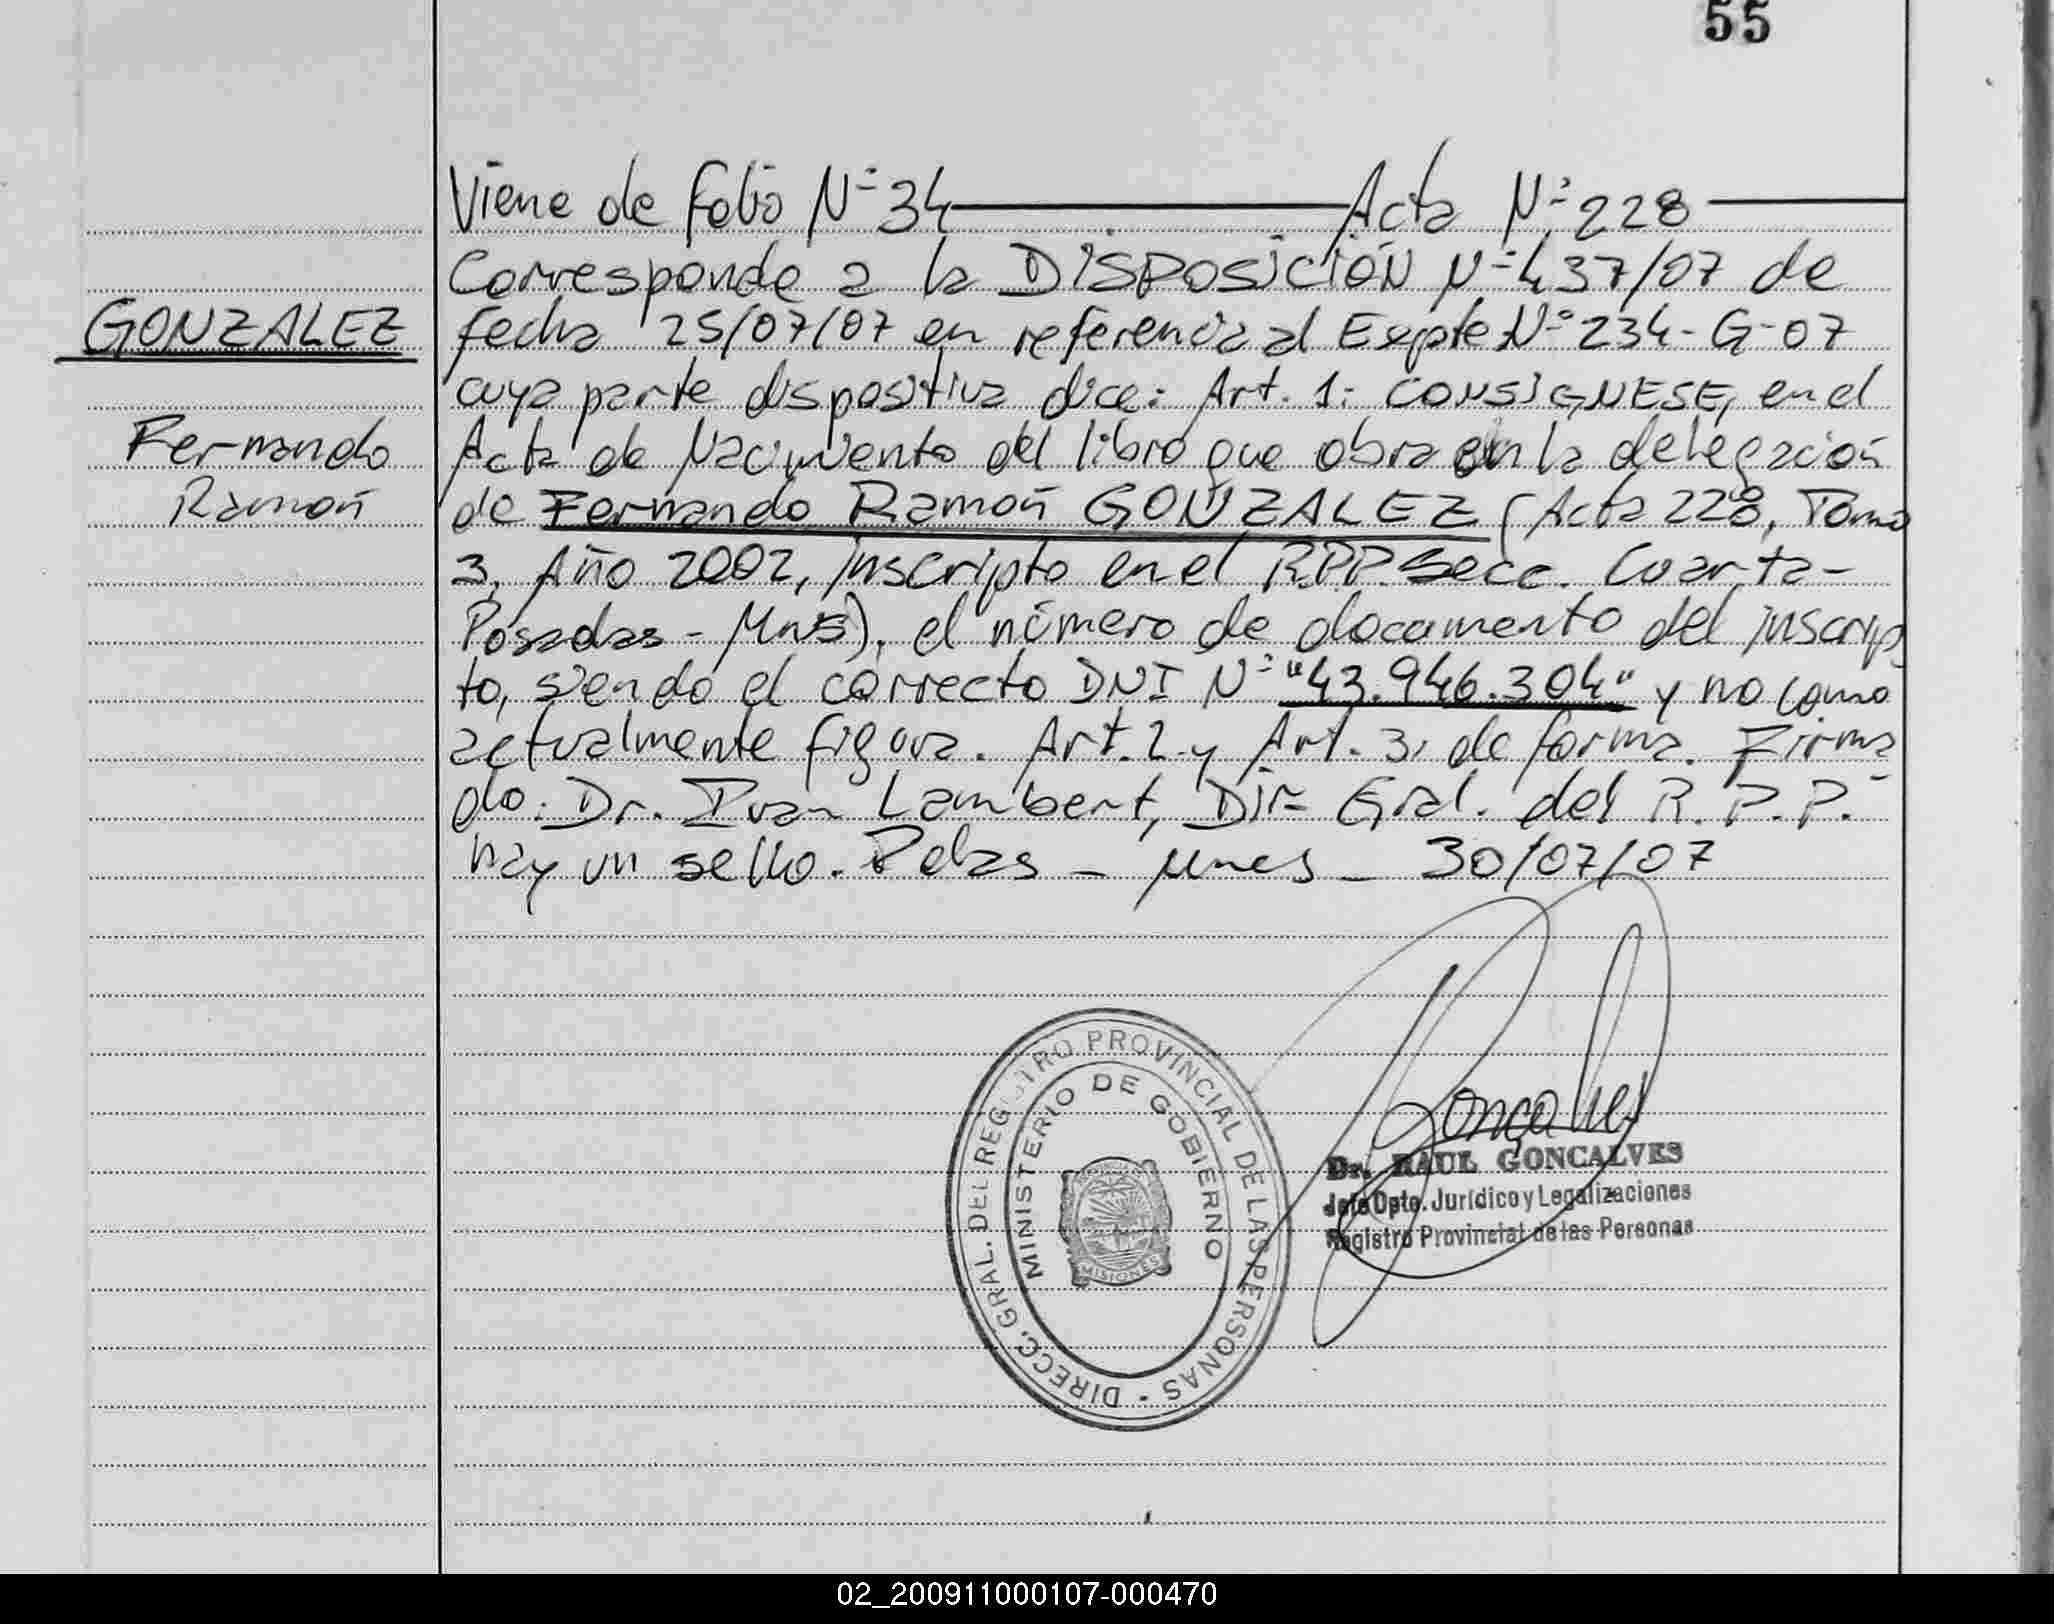 55
Viene de folio Nº 34 — Acta Nº 228 —
Corresponde a la DISPOSICIÓN Nº 437/07 de
GONZALEZ
fecha 25/07/07 en referencia al Expte Nº 234-G-07
cuya parte dispositiva dice: Art. 1: CONSIGNESE, en el
Fernando
Acta de Nacimiento del libro que obra en la delegación
Ramón
de Fernando Ramón GONZALEZ (Acta 228, Tomo
3, Año 2002, inscripto en el R.P.P. Secc. Cuarta-
Posadas - Mns), el número de documento del inscrip
to, siendo el correcto DNI Nº "43.946.304" y no como
actualmente figura. Art. 2 y Art. 3, de forma. Firma
do: Dr. Ivan Lambert, Dir Gral. del R.P.P.-
hay un sello. Pdas - Mnes - 30/07/07
DIRECC. GRAL. DEL REGISTRO PROVINCIAL DE LAS PERSONAS -
MINISTERIO DE GOBIERNO
MISIONES
Goncalves
Dr. RAUL GONCALVES
Jefe Dpto. Jurídico y Legalizaciones
Registro Provincial de las Personas
02_200911000107-000470